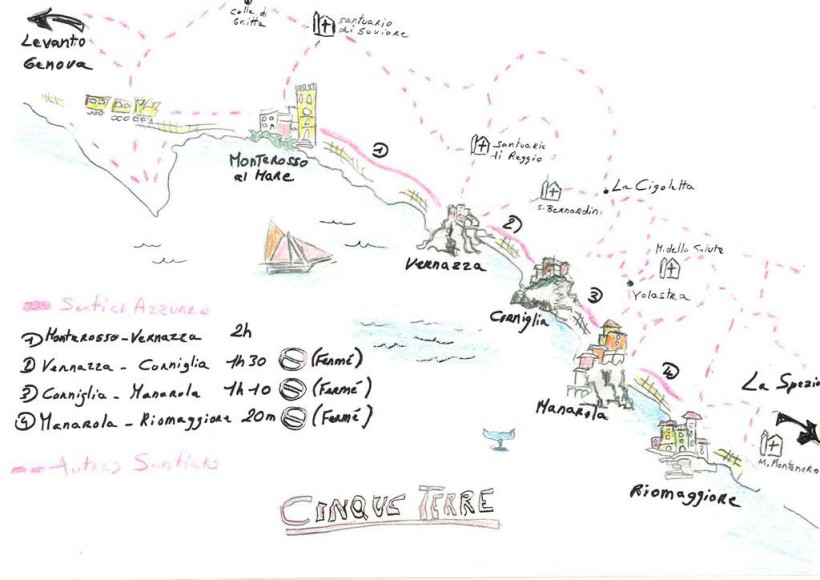 Colle di
Gritta
santuario
di Soviore
Levanto
Genova
Monterosso
al Mare
1
santuario
di Reggio
La Cigoletta
S. Bernardino
2
Vernazza
M. della Salute
Volastra
3
Corniglia
Sentier Azzurro
① Monterosso-Vernazza 2h
② Vernazza - Corniglia 1h30 (Fermé)
③ Corniglia - Manarola 1h10 (Fermé)
④ Manarola - Riomaggiore 20m (Fermé)
4
La Spezia
Manarola
M. Montenero
Autres Sentiers
Riomaggiore
CINQUE TERRE